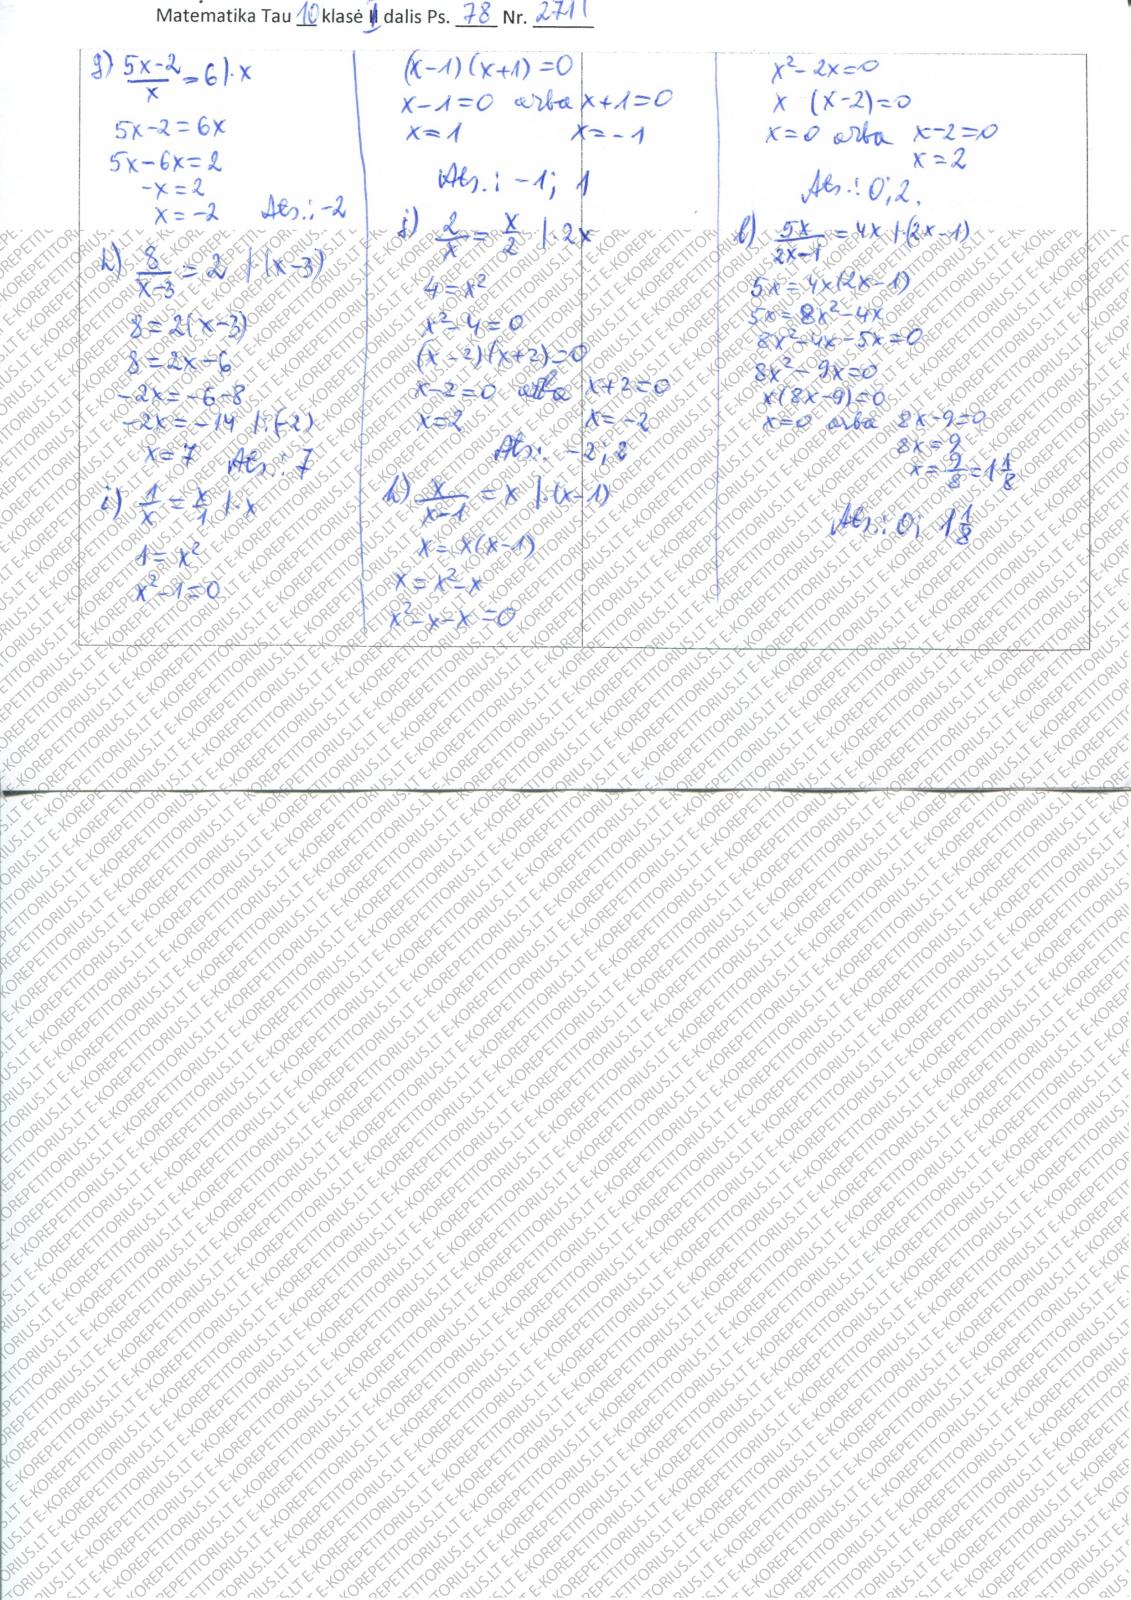 Matematika Tau 10 klasė II dalis Ps. 78 Nr. 271
g) (5x-2)/x = 6 |·x
5x-2=6x
5x-6x=2
-x=2
x=-2 Ats.: -2
h) 8/(x-3) = 2 |·(x-3)
8=2(x-3)
8=2x-6
-2x=-6-8
-2x=-14 |:(-2)
x=7 Ats.: 7
i) 1/x = x/1 |·x
1=x²
x²-1=0
(x-1)(x+1)=0
x-1=0 arba x+1=0
x=1 x=-1
Ats.: -1; 1
j) 2/x = x/2 |·2x
4=x²
x²-4=0
(x-2)(x+2)=0
x-2=0 arba x+2=0
x=2 x=-2
Ats.: -2; 2
k) x/(x-1) = x |·(x-1)
x=x(x-1)
x=x²-x
x²-x-x=0
x²-2x=0
x (x-2)=0
x=0 arba x-2=0
x=2
Ats.: 0; 2.
l) 5x/(2x-1) = 4x |·(2x-1)
5x=4x(2x-1)
5x=8x²-4x
8x²-4x-5x=0
8x²-9x=0
x(8x-9)=0
x=0 arba 8x-9=0
8x=9
x=9/8=1 1/8
Ats.: 0; 1 1/8
E-KOREPETITORIUS.LT